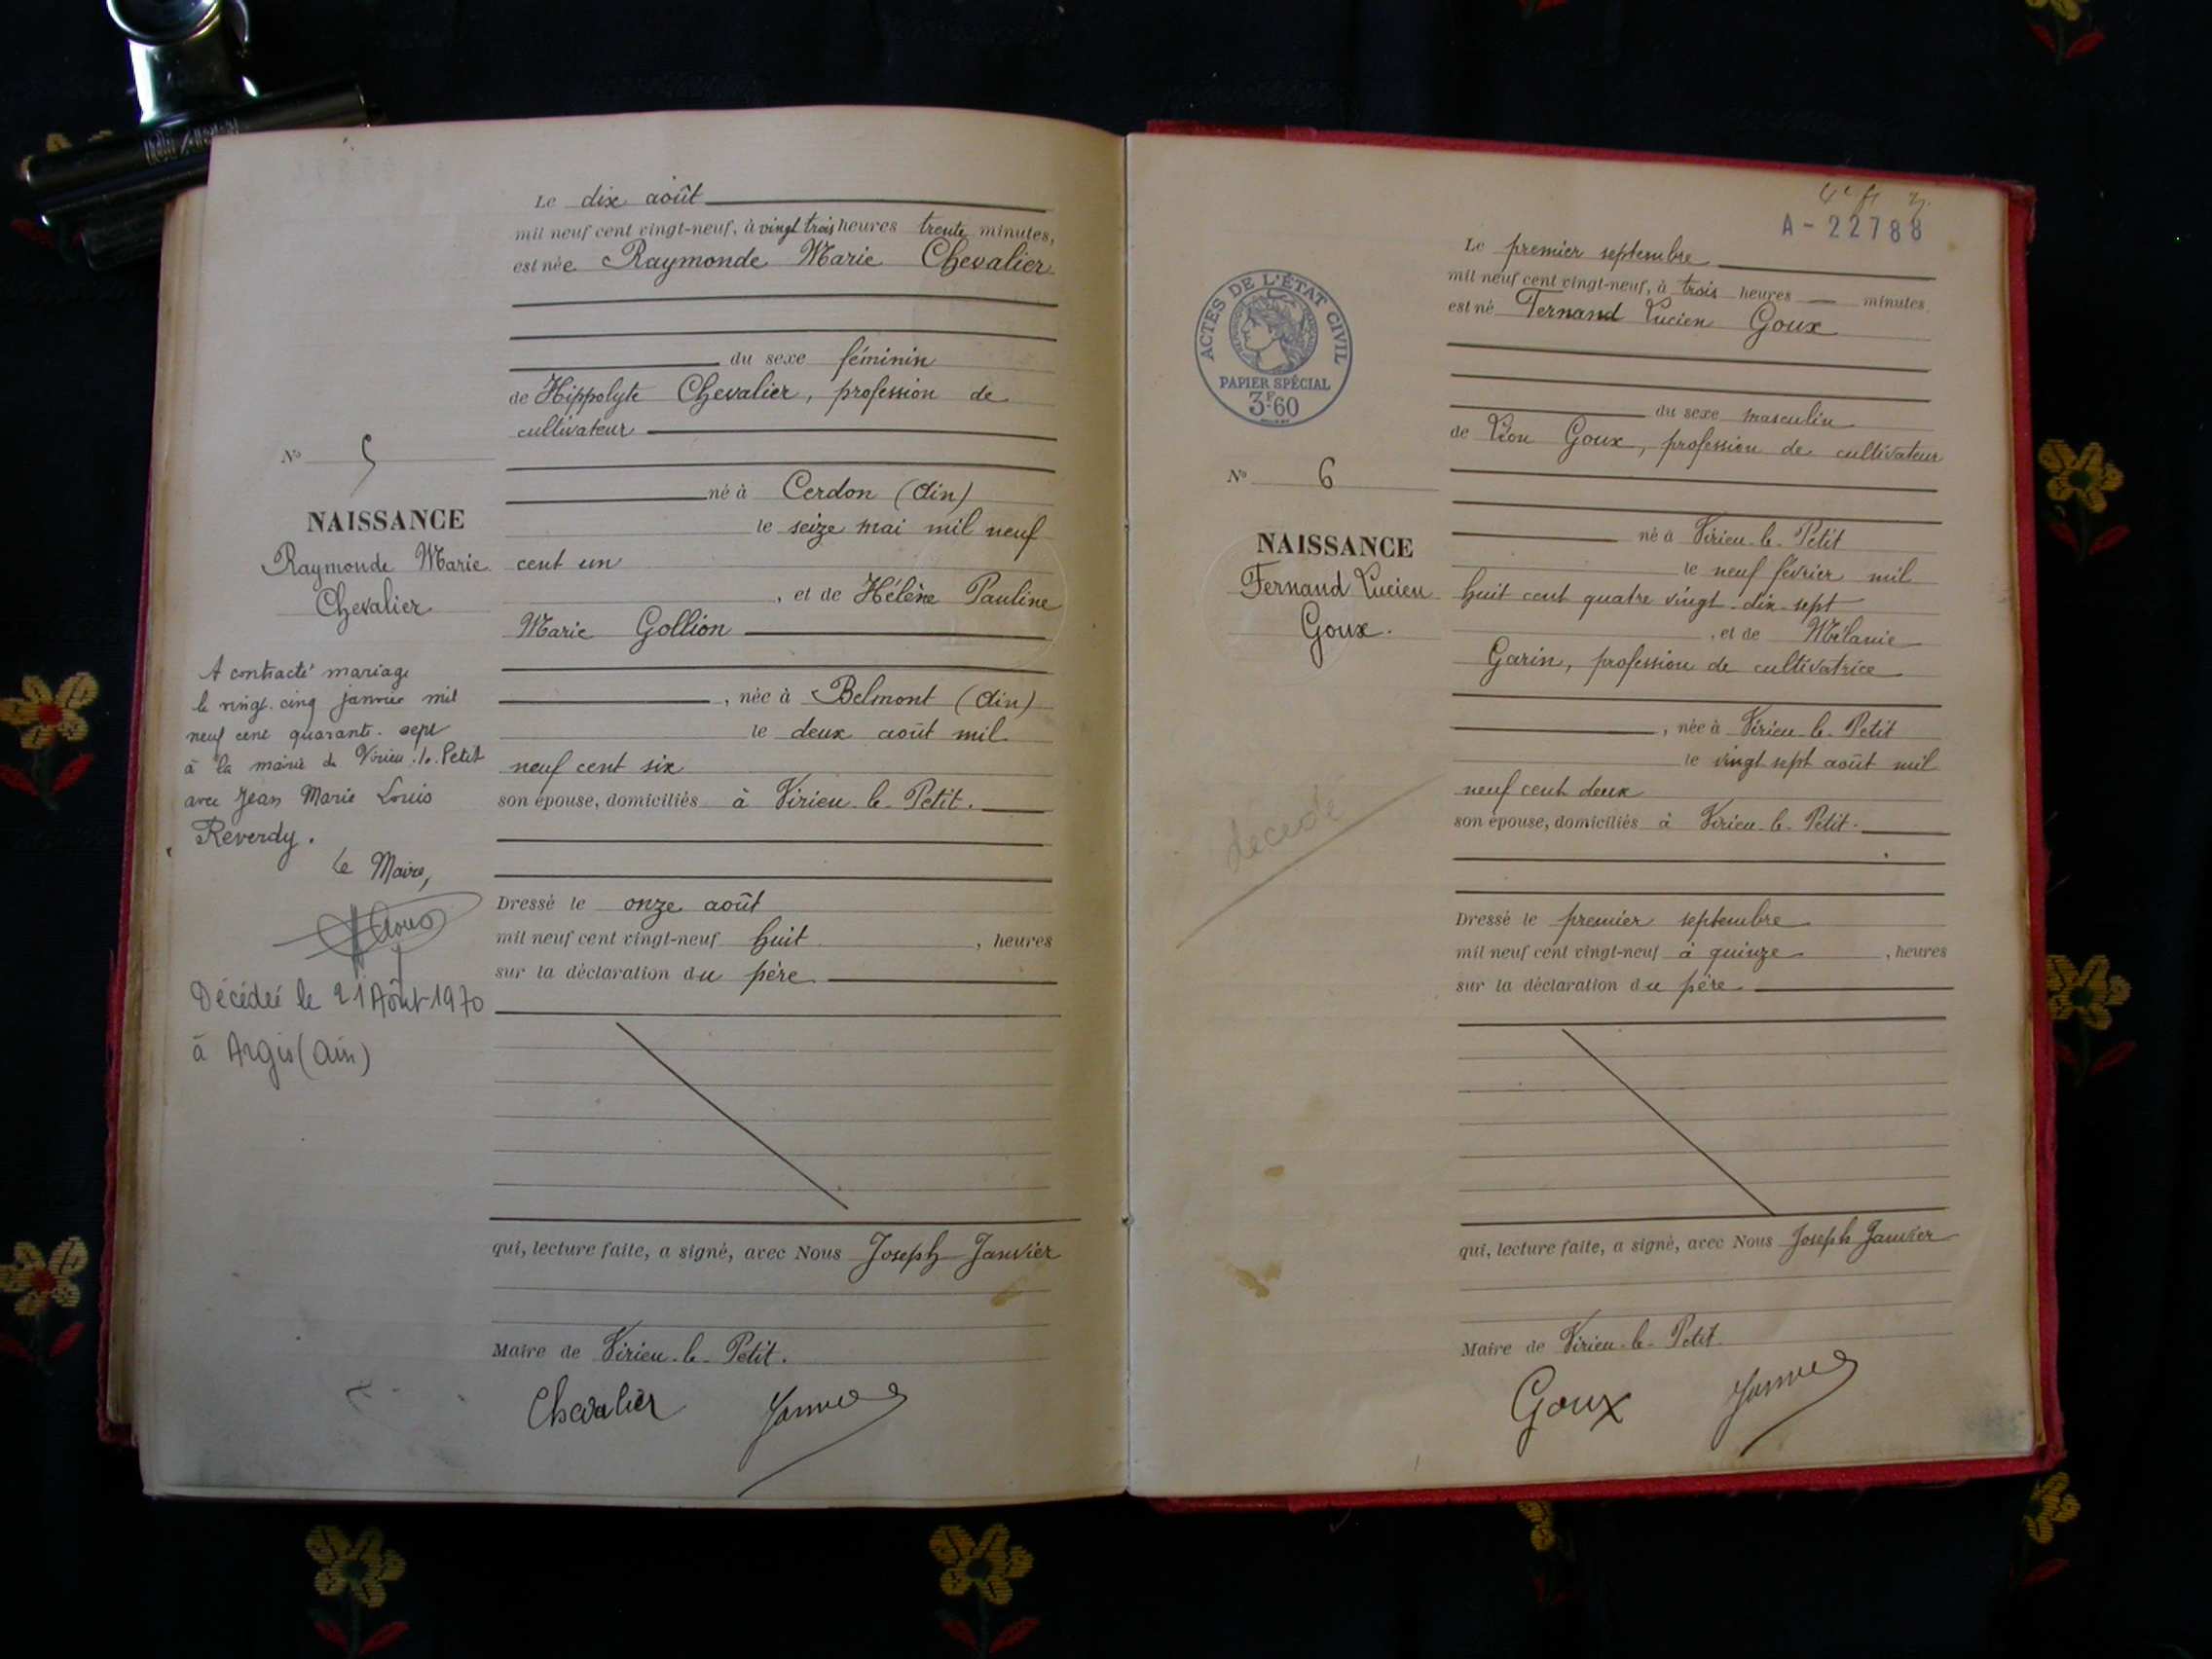 Le dix août
mil neuf cent vingt-neuf, à vingt trois heures trente minutes,
est née Raymonde Marie Chevalier
du sexe féminin
de Hippolyte Chevalier, profession de
cultivateur
né à Cerdon (Ain)
le seize mai mil neuf
cent un
, et de Hélène Pauline
Marie Gollion
, née à Belmont (Ain)
le deux août mil
neuf cent six
son épouse, domiciliés à Virieu-le-Petit.
Dressé le onze août
mil neuf cent vingt-neuf huit , heures
sur la déclaration du père
qui, lecture faite, a signé, avec Nous Joseph Janvier
Maire de Virieu-le-Petit.
Chevalier
N° 5
NAISSANCE
Raymonde Marie
Chevalier
A contracté mariage
le vingt-cinq janvier mil
neuf cent quarante-sept
à la mairie de Virieu-le-Petit
avec Jean Marie Louis
Reverdy.
Le Maire,
Décédée le 21 Août 1970
à Argis (Ain)
A-22788
ACTES DE L'ÉTAT CIVIL
PAPIER SPÉCIAL
3F.60
N° 6
NAISSANCE
Fernand Lucien
Goux.
décédé
Le premier septembre
mil neuf cent vingt-neuf, à trois heures — minutes
est né Fernand Lucien Goux
du sexe masculin
de Léon Goux, profession de cultivateur
né à Virieu-le-Petit
le neuf février mil
huit cent quatre vingt-dix-sept
, et de Mélanie
Garin, profession de cultivatrice
, née à Virieu-le-Petit
le vingt sept août mil
neuf cent deux
son épouse, domiciliés à Virieu-le-Petit.
Dressé le premier septembre
mil neuf cent vingt-neuf à quinze , heures
sur la déclaration du père
qui, lecture faite, a signé, avec Nous Joseph Janvier
Maire de Virieu-le-Petit.
Goux